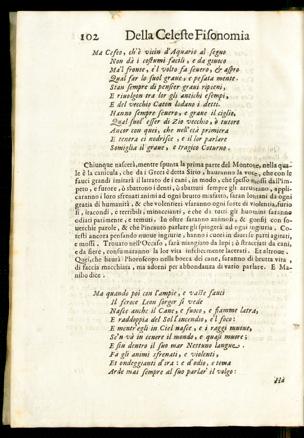 102 Della Celeste Fisonomia
Ma Cefeo, ch'è vicin d'Aquario al segno
Non dà i costumi facili, e da giuoco
Ma'l fronte, e'l volto fa seuero, & aspro
Qual far lo suol graue, e pesata mente.
Stan sempre di pensier graui ripieni,
E riuolgon tra lor gli antichi esempi,
E del vecchio Caton lodano i detti.
Hanno sempre seuero, e graue il ciglio,
Qual suol' esser di Zio vecchio, ò tutore
Ancor con quei, che nell'età primiera
E tenera ei nodrisce, e il lor parlare
Somiglia il graue, e tragico Coturno.
Chiunque nascerà, mentre spunta la prima parte del Montone, nella qua-
le è la canicula, che da i Greci è detta Sirio, hauranno la voce, che con le
fauci grandi imitarà il latrato de i cani, in modo, che spesso mossi dall'im-
peto, e furore, ò sbattono i denti, ò sbattuti sempre gli arrotano, appli-
caranno i loro sfrenati animi ad ogni brutto misfatto, saran lontani da ogni
gratia di humanità; & che volentieri vsaranno ogni sorte di violentia, furio
si, iracondi, e terribili, minaccieuoli, e che da tutti gli huomini saranno
odiati parimente, e temuti.
uerchie parole, & che l'incauto parlare gli spingerà ad ogni ingiuria.
e mossi. Trouato nell'Occaso, sarà
da fiere, consumaranno la lor vita infelicemente lacerati. Et altroue.
Quei, che haurà l'Horoscopo nella bocca del cane, saranno di brutta vita,
di faccia macchiata, ma adorni per abbondanza di vario parlare. E Ma-
nilio dice.
Ma quando poi con l'ampie, e vaste fauci
Il feroce Leon sorger si vede
Nasce anche il Cane, e fuoco, e fiamme latra,
E raddoppia del Sol l'incendio, e'l foco:
E mentr'egli in Ciel nasce, e i raggi muoue,
Se'n và in cenere il mondo, e quasi muore;
E fin dentro il suo mar Nettuno langue.
Fa gli animi sfrenati, e violenti,
Et ondeggianti d'ira: e d'odio, e tema
Arde mai sempre al suo parlar' il volgo: